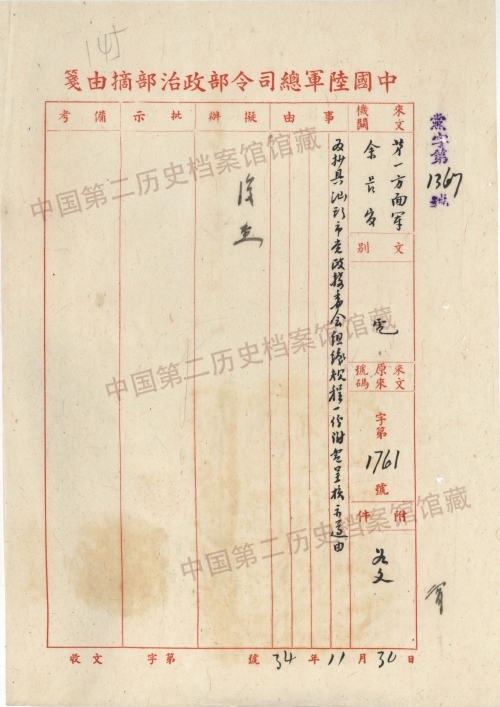 中國陸軍總司令部政治部摘由箋
黨字第1367號
來文機關
第一方面軍
余
文別
電
來文原來號碼
字第1761號
附件
如文
事由
為抄具汕頭市党政接委会組織規程一份附電呈核示遵由
擬辦
批示
備考
收文 字第 號 34年11月30日
中国第二历史档案馆馆藏
中国第二历史档案馆馆藏
中国第二历史档案馆馆藏